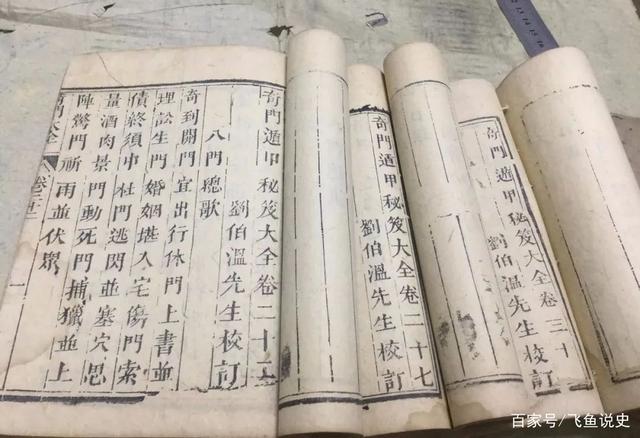 奇門遁甲秘笈大全卷二十
劉伯溫先生校訂
八門總歌
奇到開門宜出行休門上書並
理訟生門婚姻堪入宅傷門索
債終須中杜門逃閃並塞穴思
量酒肉景門動死門捕獵並上
陣驚門祈雨並伏眾
奇門大全 卷二十 一
奇門遁甲秘笈大全卷二十七
劉伯溫先生校訂
奇門遁甲秘笈大全卷三十
劉伯溫先生校訂
百家号/飞鱼说史